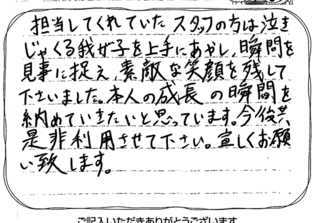 担当してくれていたスタッフの方は泣き
じゃくる我が子を上手にあやし、瞬間を
見事に捉え、素敵な笑顔を残して
下さいました。本人の成長の瞬間を
納めていきたいと思っています。今後共、
是非利用させて下さい。宜しくお願
い致します。
ご記入いただきありがとうございます